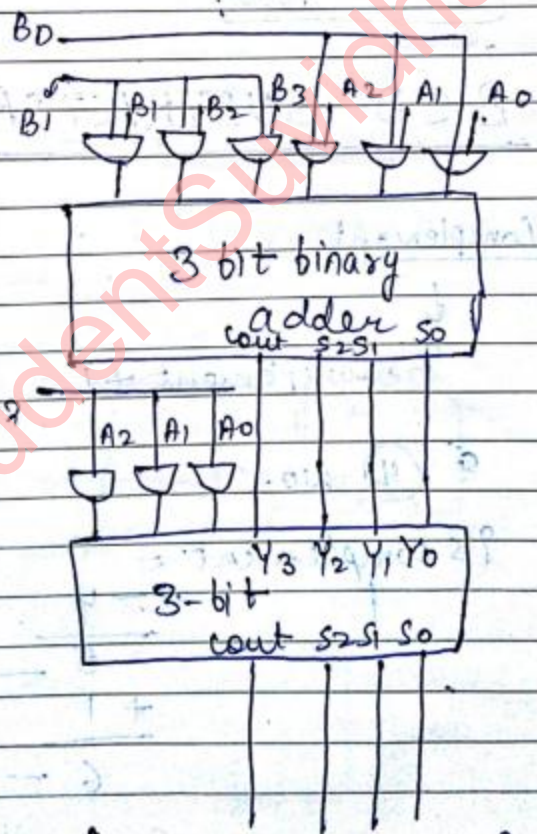 BD
B1 B1 B2 B3 A2 A1 A0
3 bit binary
adder
cout S2 S1 S0
A2 A1 A0
Y3 Y2 Y1 Y0
3-bit
cout S2 S1 S0
dentSuvidha